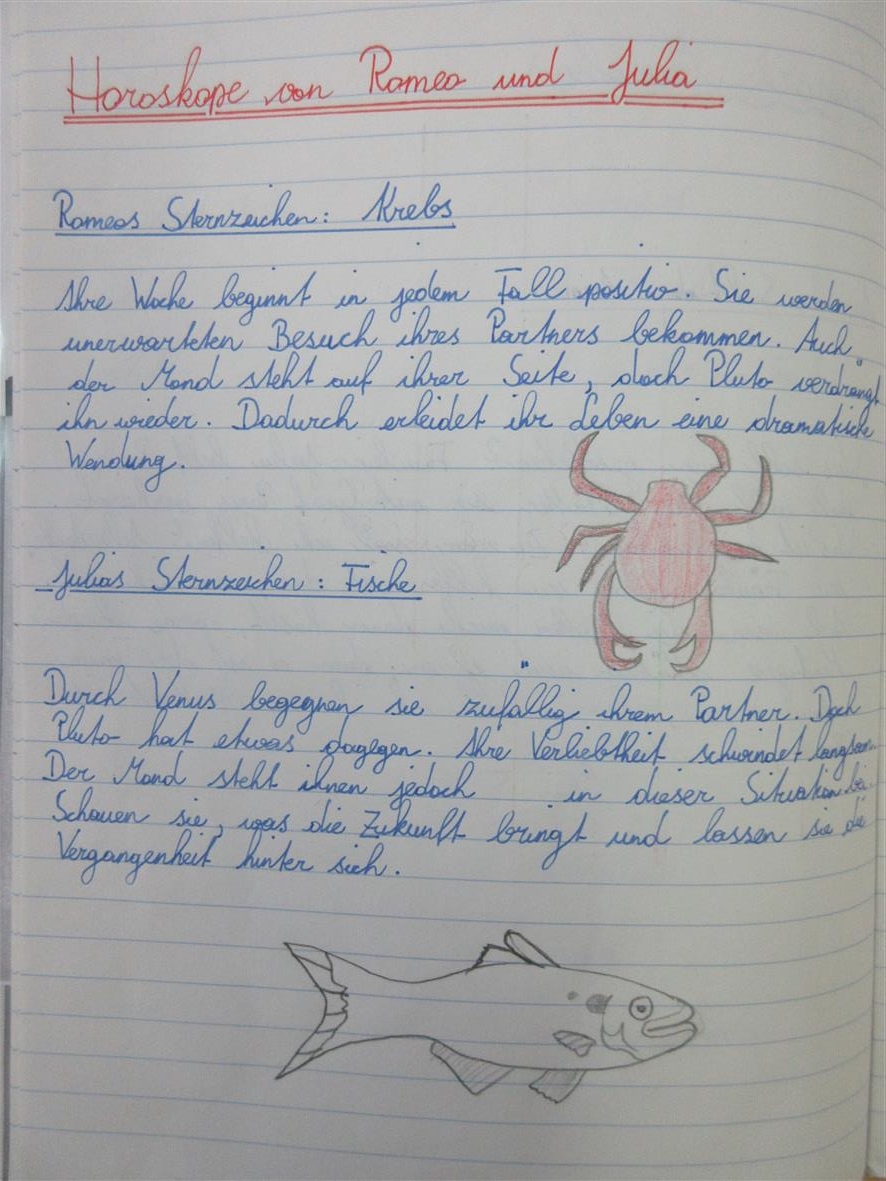 Horoskope von Romeo und Julia
Romeos Sternzeichen: Krebs
Ihre Woche beginnt in jedem Fall positiv. Sie werden
unerwarteten Besuch ihres Partners bekommen. Auch
der Mond steht auf ihrer Seite, doch Pluto verdrängt
ihn wieder. Dadurch erleidet ihr Leben eine dramatische
Wendung.
Julias Sternzeichen: Fische
Durch Venus begegnen sie zufällig ihrem Partner. Doch
Pluto hat etwas dagegen. Ihre Verliebtheit schwindet langsam.
Der Mond steht ihnen jedoch in dieser Situation bei.
Schauen sie, was die Zukunft bringt und lassen sie die
Vergangenheit hinter sich.